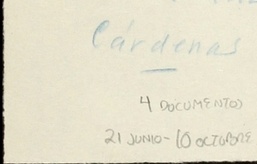 Cárdenas
4 DOCUMENTOS
21 JUNIO - 10 OCTUBRE